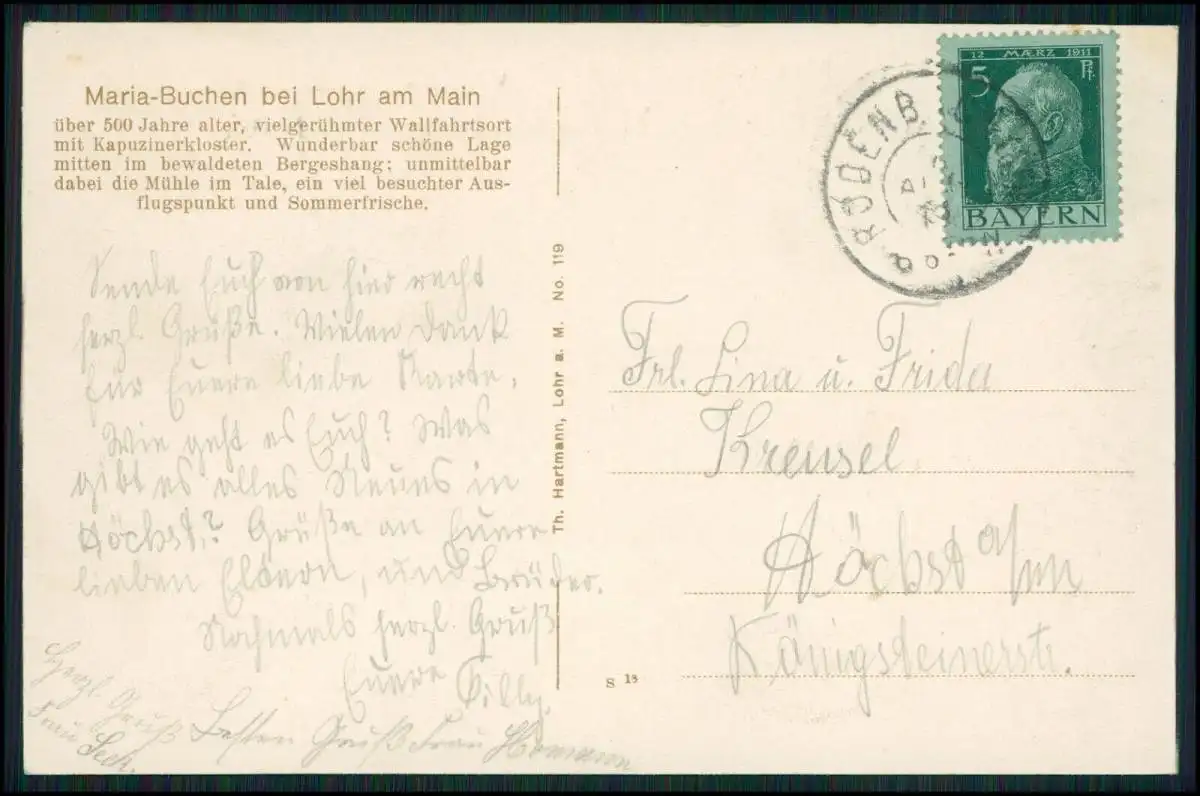 Maria-Buchen bei Lohr am Main
über 500 Jahre alter, vielgerühmter Wallfahrtsort
mit Kapuzinerkloster. Wunderbar schöne Lage
mitten im bewaldeten Bergeshang; unmittelbar
dabei die Mühle im Tale, ein viel besuchter Aus-
flugspunkt und Sommerfrische.
Sende Euch von hier recht
herzl. Grüße. Vielen Dank
für Euere liebe Karte.
Wie geht es Euch? Was
gibt es alles Neues in
Höchst? Grüße an Euere
lieben Eltern, und Brüder.
Nochmals herzl. Gruß
Euere Cilly.
Herzl. Gruß
Frau Sech.
Besten Gruß Frau Hormann
Th. Hartmann, Lohr a. M. No. 119
12 MÆRZ 1911
5 Pf.
BAYERN
RODENB
Frl. Lina u. Frida
Kreusel
Höchst a/m
Königsteinerstr.
S 13